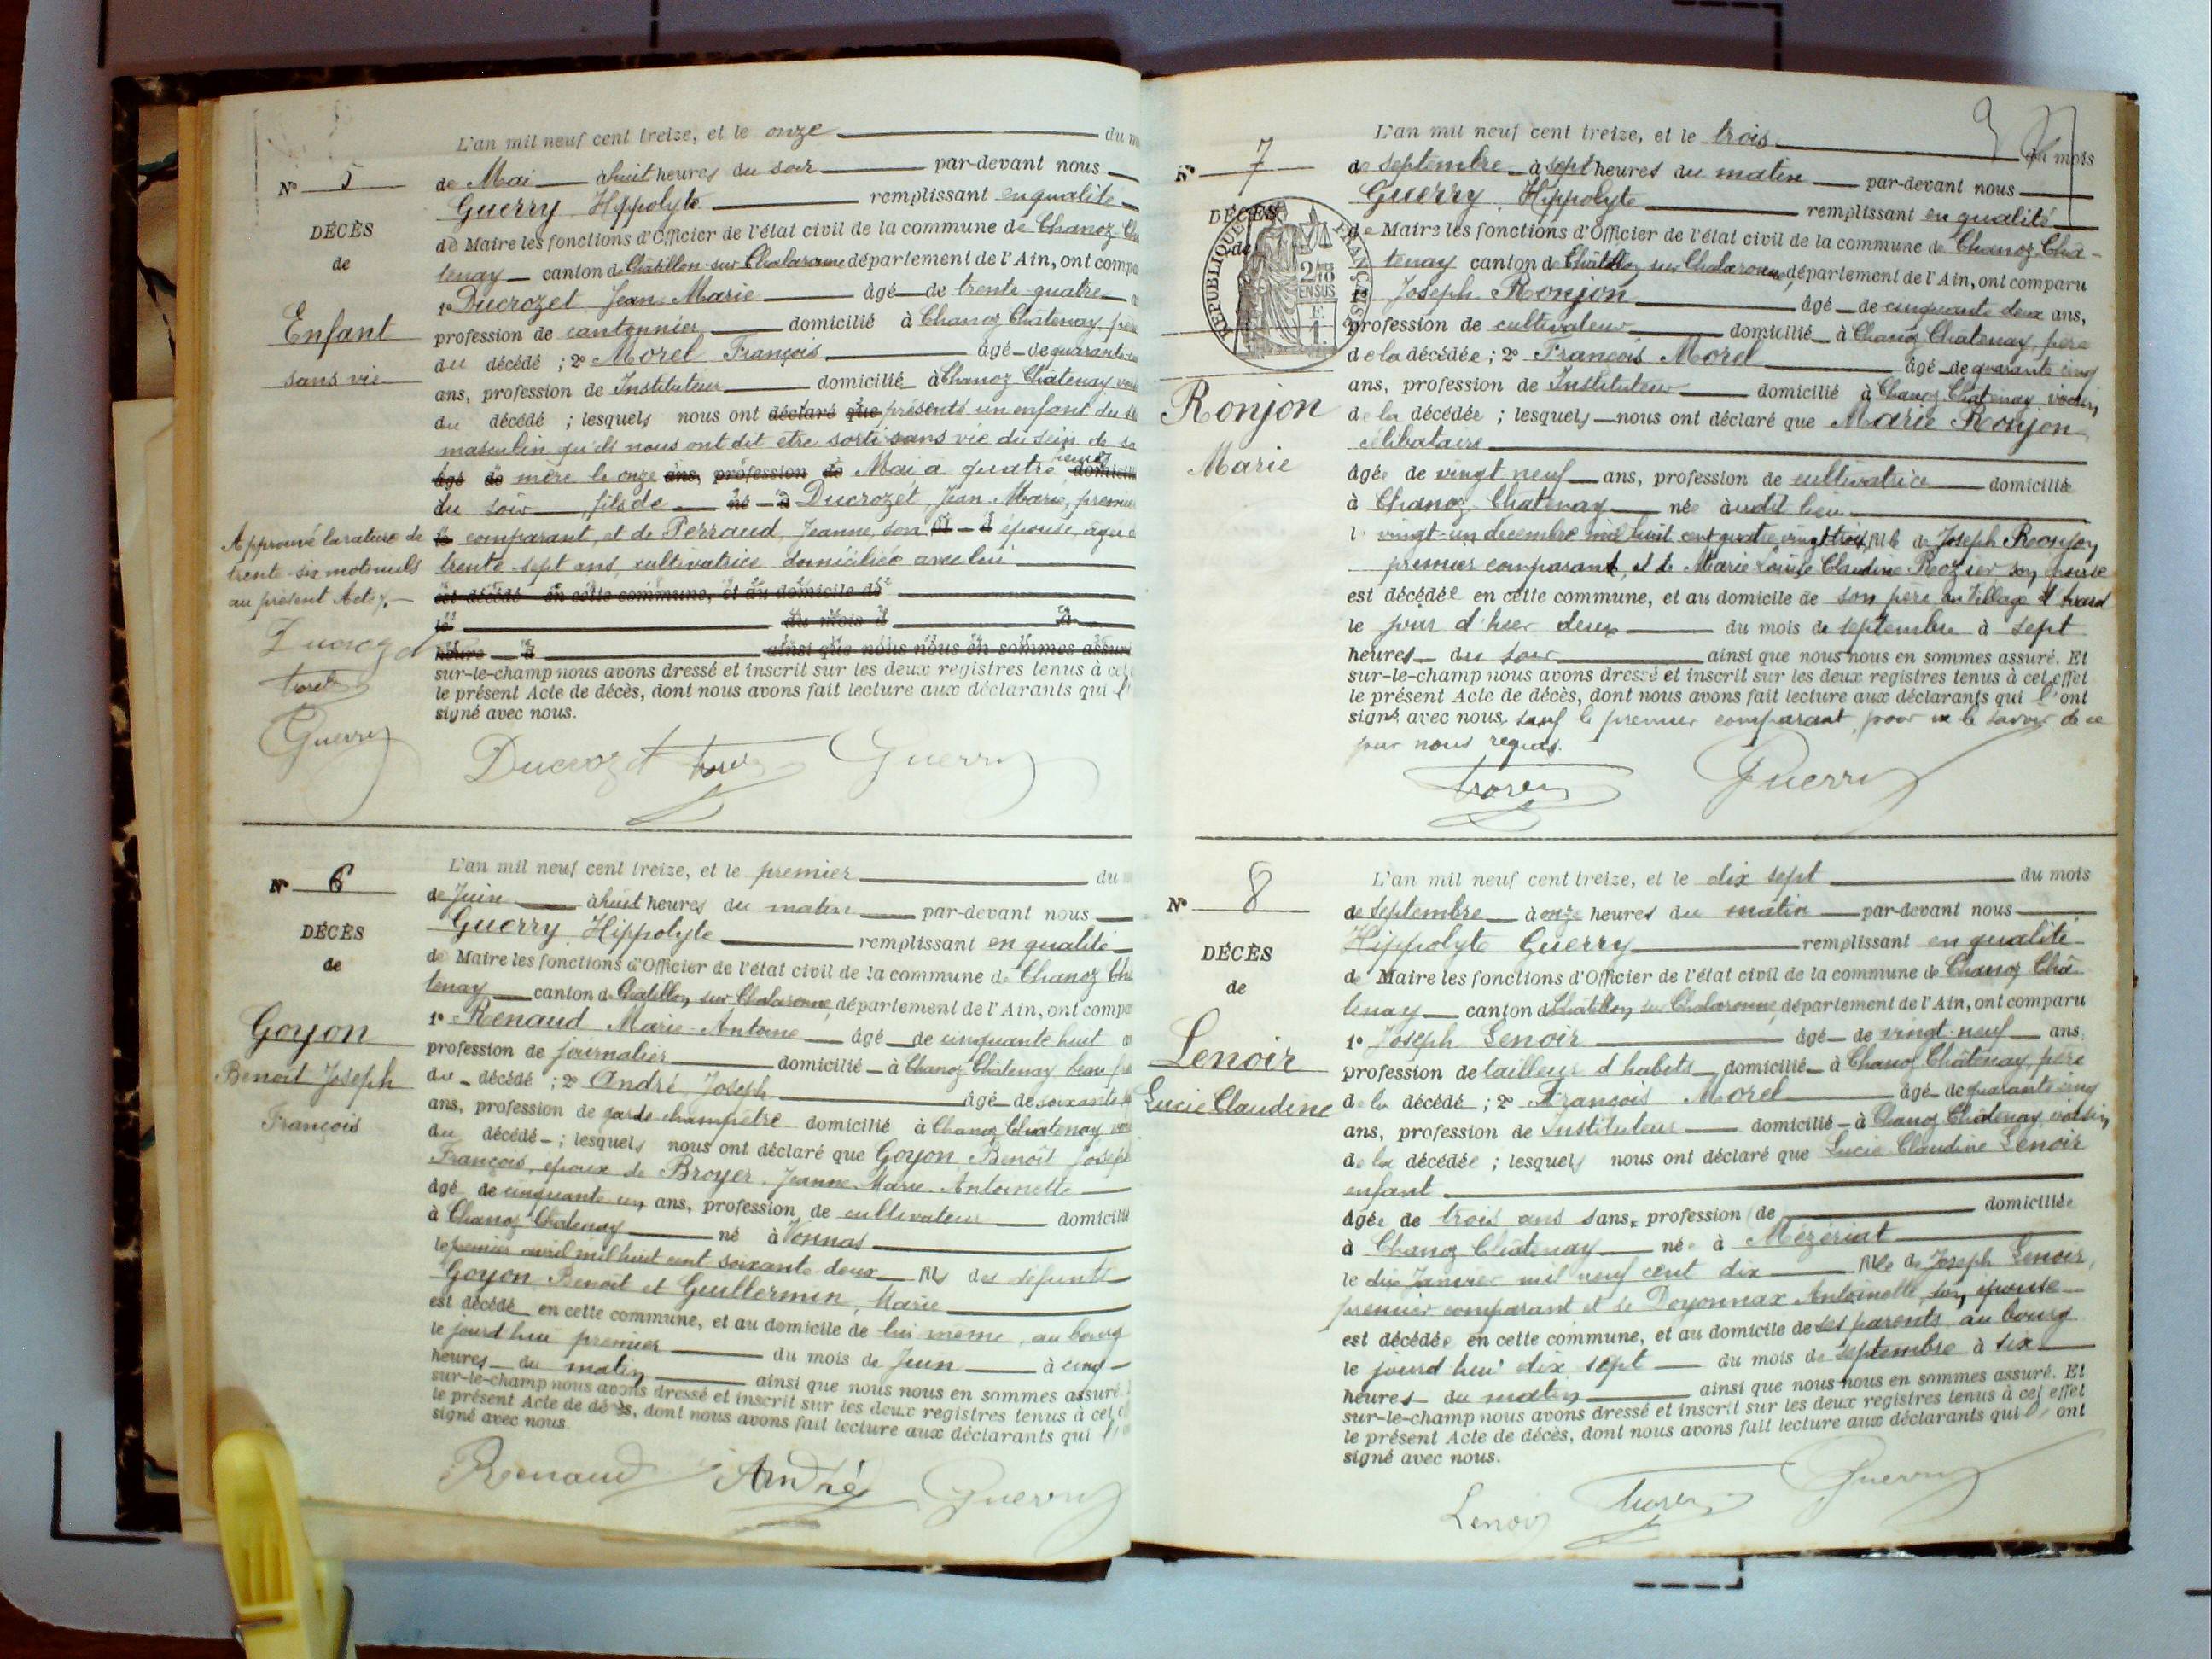 L'an mil neuf cent treize, et le onze du m
N° 5
de Mai à huit heures du soir par-devant nous
Guerry Hippolyte remplissant en qualité
DÉCÈS
de Maire les fonctions d'Officier de l'état civil de la commune de Chanoz Châ
de
tenay canton de Châtillon-sur-Chalaronne département de l'Ain, ont compa
1° Ducrozet Jean Marie âgé de trente quatre
Enfant
profession de cantonnier domicilié à Chanoz Châtenay, père
sans vie
du décédé ; 2° Morel François âgé de quarante
ans, profession de Instituteur domicilié à Chanoz Châtenay
du décédé ; lesquels nous ont déclaré que présenté un enfant du
masculin qu'ils nous ont dit etre sorti sans vie du sein de sa
âgé de mère le onze ans, profession de Mai à quatre heures domicilié
du soir fils de né à Ducrozet Jean Marie, premier
Approuvé la rature de
le comparant, et de Perraud, Jeanne, son épouse, âgée
trente-six mots nuls
trente sept ans, cultivatrice domiciliée avec lui
au présent Acte
est décédé en cette commune, et au domicile de
le du mois d à
Ducrozet
heure d ainsi que nous nous en sommes assuré
sur-le-champ nous avons dressé et inscrit sur les deux registres tenus à cet e
Morel
le présent Acte de décès, dont nous avons fait lecture aux déclarants qui l'
signé avec nous.
Guerry
Ducrozet Morel Guerry
L'an mil neuf cent treize, et le premier du
N° 6
de Juin à huit heures du matin par-devant nous
Guerry Hippolyte remplissant en qualité
DÉCÈS
de Maire les fonctions d'Officier de l'état civil de la commune de Chanoz Châ
de
tenay canton de Châtillon sur Chalaronne, département de l'Ain, ont compa
1° Renaud Marie-Antoine âgé de cinquante huit a
Goyon
profession de journalier domicilié à Chanoz Châtenay beau frè
Benoit Joseph
du décédé ; 2° André Joseph âgé de soixante
François
ans, profession de garde-champêtre domicilié à Chanoz Châtenay voi
du décédé ; lesquels nous ont déclaré que Goyon Benoît Joseph
François, époux de Broyer Jeanne Marie Antoinette
âgé de cinquante un ans, profession de cultivateur domicilié
à Chanoz Châtenay né à Vonnas
le premier avril mil huit cent soixante deux fils des défunts
Goyon Benoit et Guillermin, Marie
est décédé en cette commune, et au domicile de lui même, au bourg
le jourd'hui premier du mois de Juin à cinq
heures du matin ainsi que nous nous en sommes assuré.
sur-le-champ nous avons dressé et inscrit sur les deux registres tenus à cet e
le présent Acte de décès, dont nous avons fait lecture aux déclarants qui l'
signé avec nous.
Renaud André Guerry
L'an mil neuf cent treize, et le trois du mois
N° 7
de septembre à sept heures du matin par-devant nous
Guerry Hippolyte remplissant en qualité
DÉCÈS
de Maire les fonctions d'Officier de l'état civil de la commune de Chanoz-Châ-
de
tenay canton de Châtillon sur Chalaronne, département de l'Ain, ont comparu
RÉPUBLIQUE FRANÇAISE
2/10 EN SUS
1° Joseph Ronjon âgé de cinquante deux ans,
profession de cultivateur domicilié à Chanoz Châtenay, père
de la décédée ; 2° François Morel âgé de quarante cinq
ans, profession de Instituteur domicilié à Chanoz Châtenay voisin
Ronjon
de la décédée ; lesquels nous ont déclaré que Marie Ronjon
célibataire
Marie
âgée de vingt neuf ans, profession de cultivatrice domiciliée
à Chanoz Châtenay née audit lieu
l vingt-un decembre mil huit cent quatre vingt trois, fille de Joseph Ronjon
premier comparant, et de Marie Louise Claudine Rozier son épouse
est décédée en cette commune, et au domicile de son père au Village
le jour d'hier deux du mois de septembre à sept
heures du soir ainsi que nous nous en sommes assuré. Et
sur-le-champ nous avons dressé et inscrit sur les deux registres tenus à cet effet
le présent Acte de décès, dont nous avons fait lecture aux déclarants qui l'ont
signé avec nous, sauf le premier comparant, pour ne le savoir de ce
par nous requis.
Morel Guerry
L'an mil neuf cent treize, et le dix sept du mois
N° 8
de septembre à onze heures du matin par-devant nous
Hippolyte Guerry remplissant en qualité
DÉCÈS
de Maire les fonctions d'Officier de l'état civil de la commune de Chanoz Châ
de
tenay canton de Châtillon sur Chalaronne, département de l'Ain, ont comparu
1° Joseph Lenoir âgé de vingt-neuf ans,
Lenoir
profession de tailleur d'habits domicilié à Chanoz Châtenay, père
Lucie Claudine
de la décédé ; 2° François Morel âgé de quarante cinq
ans, profession de Instituteur domicilié à Chanoz Châtenay voisin
de la décédée ; lesquels nous ont déclaré que Lucie Claudine Lenoir
enfant
âgée de trois ans sans profession de domiciliée
à Chanoz Châtenay née à Mézériat
le dix Janvier mil neuf cent dix fille de Joseph Lenoir,
premier comparant et de Doyonnax Antoinette, son épouse
est décédée en cette commune, et au domicile de ses parents au bourg
le jourd'hui dix sept du mois de septembre à six
heures du matin ainsi que nous nous en sommes assuré. Et
sur-le-champ nous avons dressé et inscrit sur les deux registres tenus à cet effet
le présent Acte de décès, dont nous avons fait lecture aux déclarants qui l'ont
signé avec nous.
Lenoir Morel Guerry